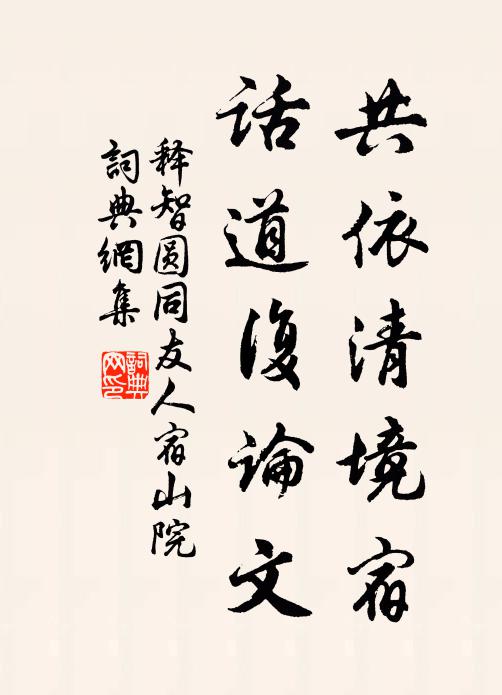 共依清境宿
话道復論文
释智圆同友人宿山院
詞典網集
詞典網印